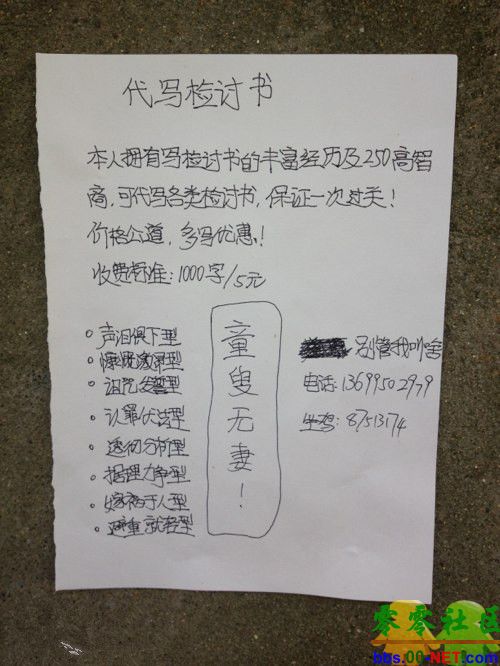 代写检讨书
本人拥有写检讨书的丰富经历及250高智
商,可代写各类检讨书,保证一次过关!
价格公道,多写优惠!
收费标准:1000字/5元
声泪俱下型
慷慨激昂型
诅咒发誓型
认罪伏法型
透彻分析型
据理力争型
嫁祸于人型
避重就轻型
童叟无妻!
别管我叫啥
电话:13699502979
坐鸡:87513174
零零社区
bbs.00-NET.com